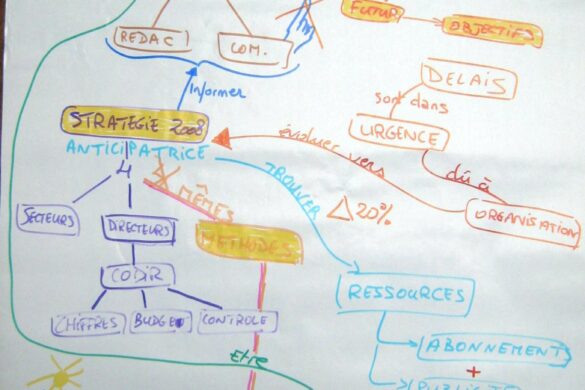 FUTUR
OBJECTIFS
REDAC
COM.
DELAIS
Informer
sont dans
STRATEGIE 2008
URGENCE
évoluer vers
ANTICIPATRICE
4
TROUVER
dû à
MÊMES
△ 20%
SECTEURS
DIRECTEURS
ORGANISATION
METHODES
CODIR
RESSOURCES
CHIFFRES
BUDGET
CONTROLE
ABONNEMENTS
Etre
+